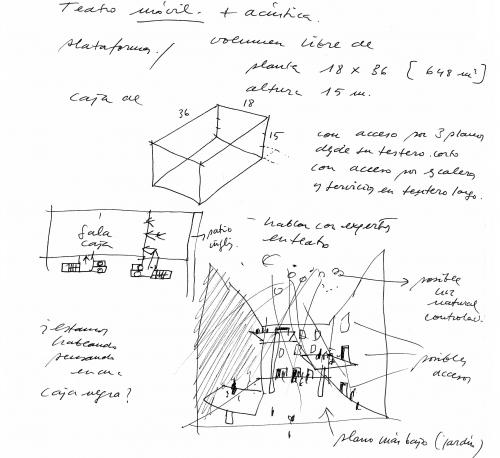 Teatro móvil. + acústica.
plataformas /
volumen libre de
planta 18 x 36 [648 m²]
altura 15 m.
caja de
36
18
15
con acceso por 3 planos
desde su testero corto
con acceso por escaleras
y servicios en testero largo.
Sala
caja
patio
inglés
- hablar con expertos
en teatro
posible
luz
natural
controlada.
¿estamos
hablando
pensando
en una
caja negra?
posibles
accesos
plano más bajo (jardín)